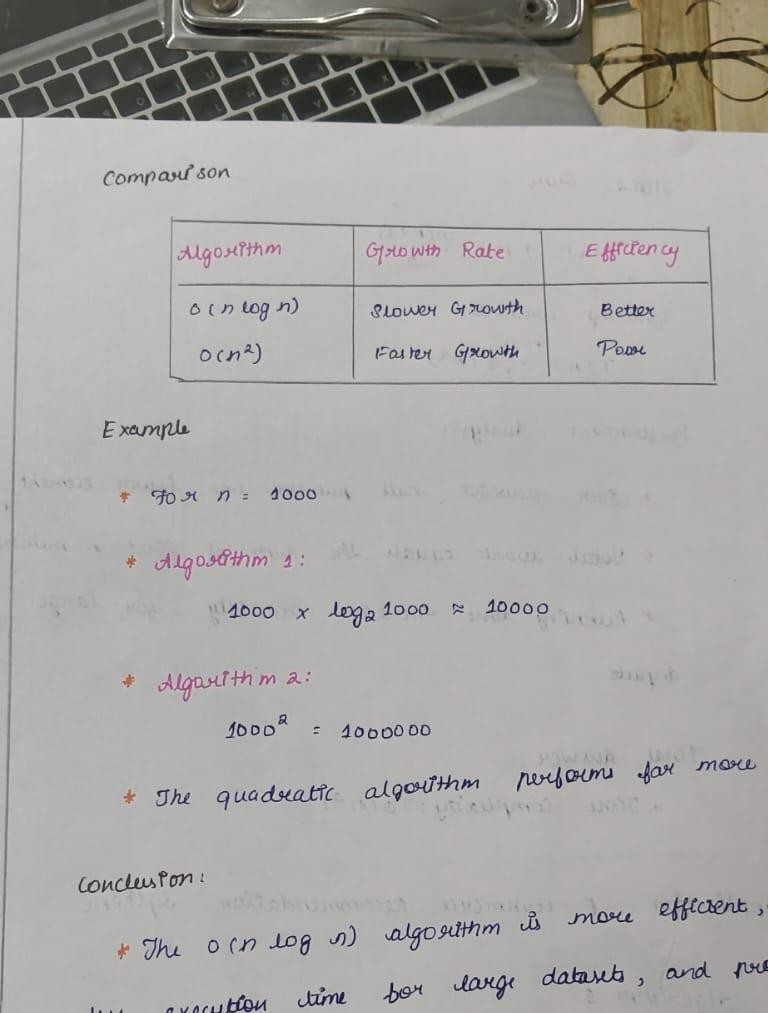 Comparison
Algorithm Growth Rate Efficiency
O(n log n) Slower Growth Better
O(n²) Faster Growth Poor
Example
* For n = 1000
* Algorithm 1:
1000 x log₂ 1000 ≈ 10000
* Algorithm 2:
1000² = 1000000
* The quadratic algorithm performs far more
Conclusion:
* The O(n log n) algorithm is more efficient,
execution time for large datasets, and